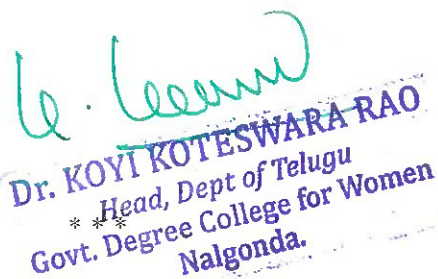 Dr. KOYI KOTESWARA RAO
Head, Dept of Telugu
* * *
Govt. Degree College for Women
Nalgonda.